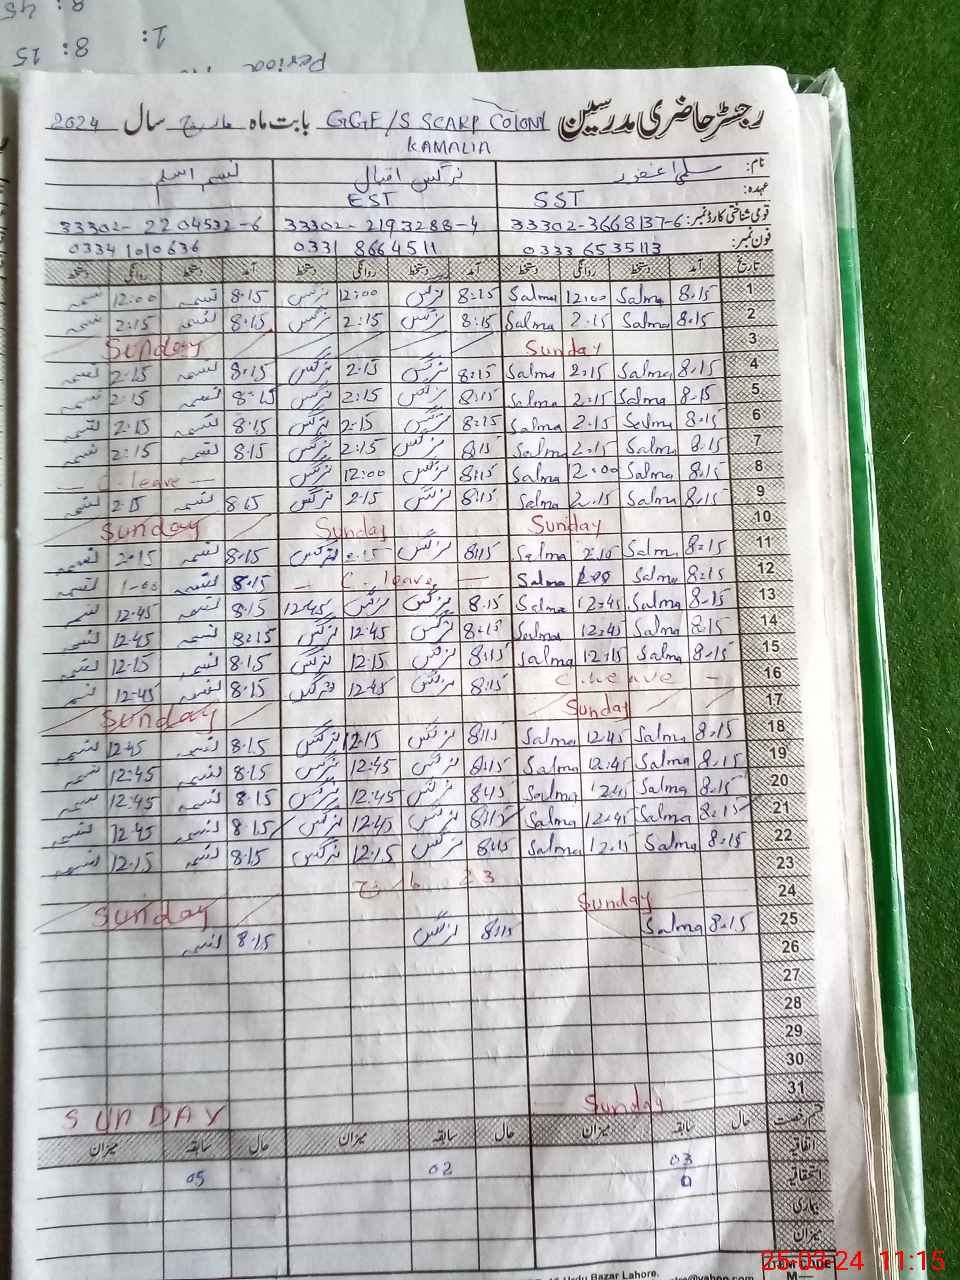 Period
8:15
رجسٹر حاضری مدرسین GGE/S SCARP COLONY بابت ماہ مارچ سال 2024
KAMALIA
نام: سلمیٰ غفور نرگس اقبال
عہدہ: SST EST
قومی شناختی کارڈ نمبر: 33302-3668137-6 33302-2193288-4 33302-2204532-6
فون نمبر: 0333 6535113 0331 8664511 0334 1010636
تاریخ آمد دستخط روانگی دستخط آمد دستخط روانگی دستخط آمد دستخط روانگی دستخط
1 8.15 Salma 12:00 Salma 8:15 نرگس 12:00 نرگس 8.15 نسیمہ 12:00 نسیمہ
2 8.15 Salma 2.15 Salma 8:15 نرگس 2:15 نرگس 8.15 نسیمہ 2:15 نسیمہ
3 Sunday Sunday
4 8.15 Salma 2.15 Salma 8:15 نرگس 2.15 نرگس 8.15 نسیمہ 2.15 نسیمہ
5 8.15 Salma 2:15 Salma 8:15 نرگس 2:15 نرگس 8:15 نسیمہ 2:15 نسیمہ
6 8.15 Salma 2.15 Salma 8:15 نرگس 2.15 نرگس 8.15 نسیمہ 2.15 نسیمہ
7 8.15 Salma 2.15 Salma 8:15 نرگس 2:15 نرگس 8.15 نسیمہ 2:15 نسیمہ
8 8.15 Salma 12:00 Salma 8:15 نرگس 12:00 نرگس C.leave
9 8.15 Salma 2.15 Salma 8:15 نرگس 2.15 نرگس 8.15 نسیمہ 2.15 نسیمہ
10 Sunday Sunday Sunday
11 8:15 Salma 2.15 Salma 8:15 نرگس 2.15 نرگس 8.15 نسیمہ 2.15 نسیمہ
12 8:15 Salma 1.00 Salma C.leave 8.15 نسیمہ 1-00 نسیمہ
13 8.15 Salma 12:45 Salma 8.15 نرگس نرگس 12:45 8.15 نسیمہ 12.45 نسیمہ
14 8.15 Salma 12:45 Salma 8:15 نرگس 12.45 نرگس 8:15 نسیمہ 12.45 نسیمہ
15 8.15 Salma 12:15 Salma 8:15 نرگس 12.15 نرگس 8.15 نسیمہ 12.15 نسیمہ
16 C.leave 8:15 نرگس 12.45 نرگس 8.15 نسیمہ 12.45 نسیمہ
17 Sunday Sunday
18 8.15 Salma 12.45 Salma 8:15 نرگس 12.15 نرگس 8.15 نسیمہ 12.45 نسیمہ
19 8.15 Salma 12.45 Salma 8:15 نرگس 12.45 نرگس 8.15 نسیمہ 12.45 نسیمہ
20 8.15 Salma 12.45 Salma 8:15 نرگس 12.45 نرگس 8.15 نسیمہ 12.45 نسیمہ
21 8.15 Salma 12.45 Salma 8:15 نرگس 12.45 نرگس 8.15 نسیمہ 12.45 نسیمہ
22 8.15 Salma 12.15 Salma 8:15 نرگس 12.15 نرگس 8.15 نسیمہ 12.15 نسیمہ
23 23 مارچ
24 Sunday Sunday
25 8.15 Salma 8:15 نرگس 8.15 نسیمہ
26
27
28
29
30
31 Sunday SUNDAY
قسم رخصت حال سابقہ میزان حال سابقہ میزان حال سابقہ میزان
اتفاقیہ 03 02 05
استحقاقیہ 0
بیماری
میزان
Urdu Bazar Lahore.
25-03-24 11:15